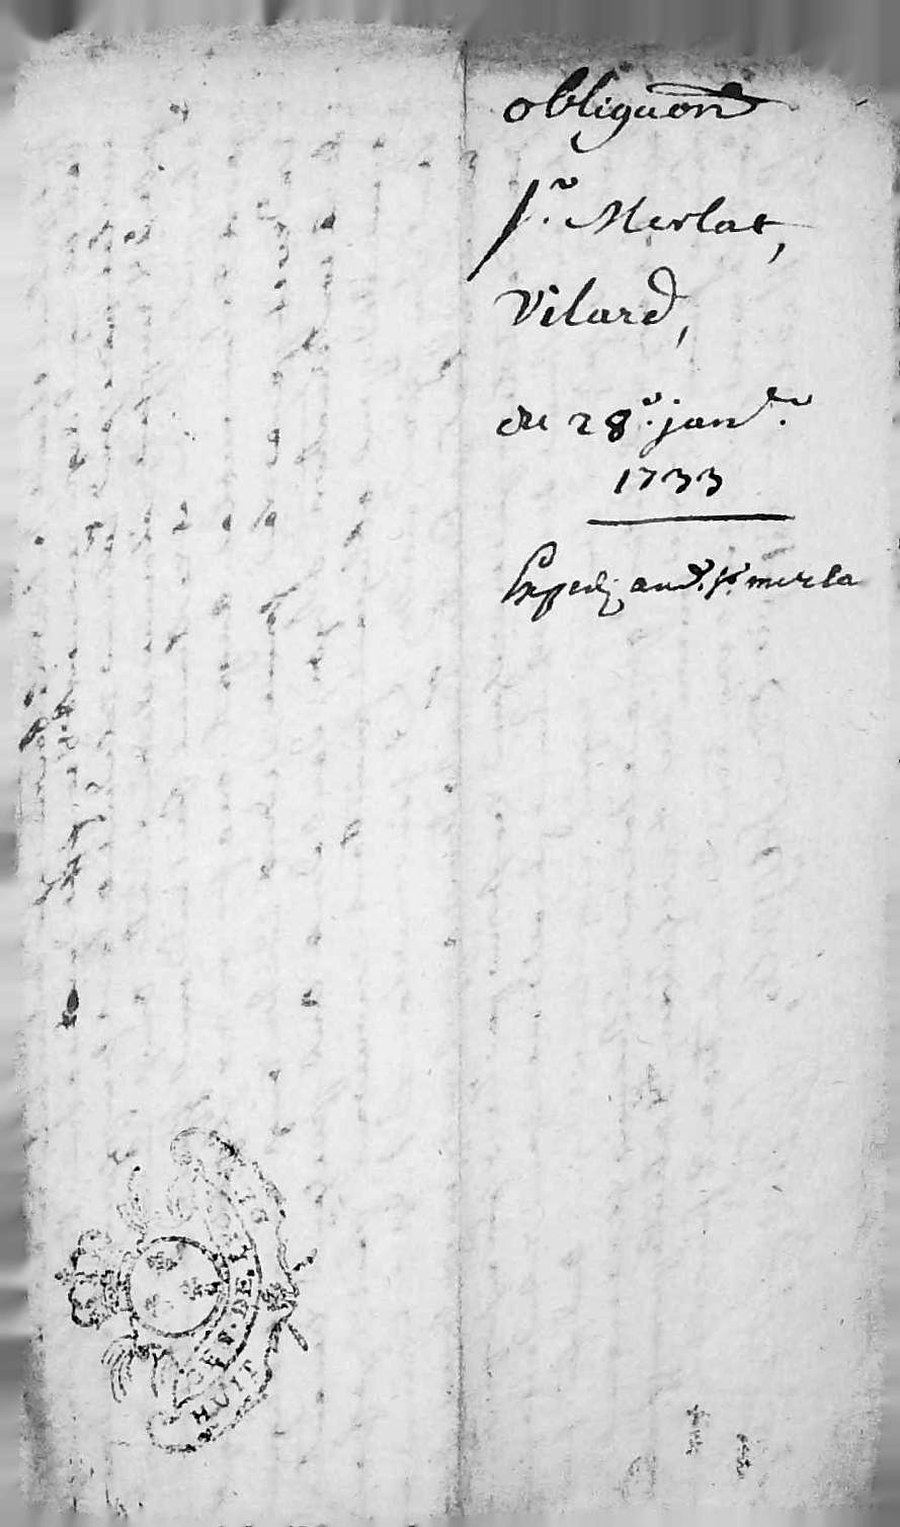 obligaon
Sr. Merlat,
Vilard,
du 28e. janvr.
1733
Expedié aud. sr. merla
GEN. DE.
HUIT